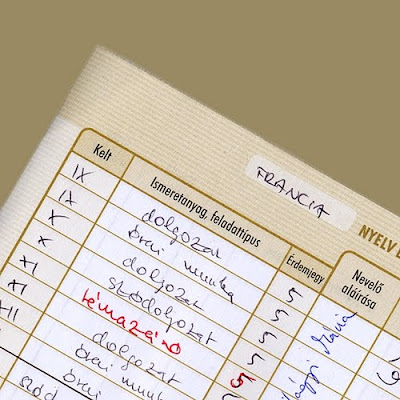 FRANCIA
NYELV
Kelt Ismeretanyag, feladattípus Érdemjegy Nevelő aláírása
IX dolgozat 5
IX órai munka 5
X dolgozat 5
X szódolgozat 5
XI témazáró 5
XI dolgozat
XII órai munka
Mária